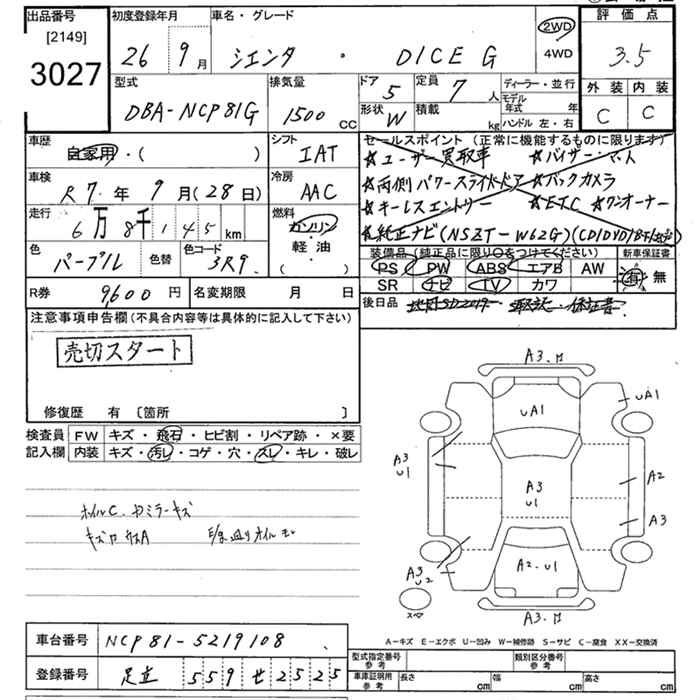 出品番号
[2149]
3027
初度登録年月
26 9月
車名・グレード
シエンタ ・ DICE G
2WD
4WD
評価点
3.5
外装 内装
C C
型式
DBA-NCP81G
排気量
1500 CC
ドア
5
定員
7人
形状
W
積載
kg
ディーラー・並行
モデル年式 年
ハンドル 左・右
車歴
自家用・( )
シフト
IAT
車検
R7年9月(28日)
冷房
AAC
走行
6万8千145km
燃料
ガソリン
軽油
( )
色
パープル
色替
色コード
3R9
セールスポイント (正常に機能するものに限ります)
☆ユーザー買取車 ☆バイザー・マット
☆両側パワースライドドア ☆バックカメラ
☆キーレスエントリー ☆ETC ☆ワンオーナー
☆純正ナビ(NSZT-W62G)(CD/DVD/
装備品 (純正品に限り○をつけてください)
PS PW ABS エアB AW
SR ナビ TV カワ
新車保証書
有 無
R券
9600円
名変期限 月 日
後日品
注意事項申告欄(不具合内容等は具体的に記入して下さい)
売切スタート
修復歴 有 [箇所 ]
検査員記入欄
FW キズ・飛石・ヒビ割・リペア跡・×要
内装 キズ・汚レ・コゲ・穴・スレ・キレ・破レ
ホイルC ドアミラーキズ
A3
UA1
UA1
A3
U1
A3
U1
A2
A3
A3
U2
A2・U1
A3
スペア
A-キズ E-エクボ U-凹み W-補修跡 S-サビ C-腐食 XX-交換済
車台番号
NCP81-5219108
登録番号
足立 559 せ 2525
型式指定番号
参考
類別区分番号
参考
車庫証明用
参考
長さ cm
幅 cm
高さ cm